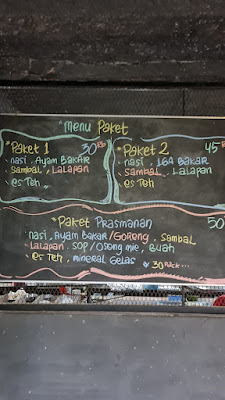 *Menu Paket
*Paket 1 30RB
. nasi, Ayam BakAR
. Sambal, Lalapan
. es Teh
*Paket 2 45RB
. nasi, IGA BAkar
. Sambal, Lalapan
. es Teh
*Paket Prasmanan 50
. nasi, Ayam Bakar/Goreng, Sambal
. Lalapan, SOP/Oseng mie, Buah
. es Teh, mineral Gelas * 30 Pack...